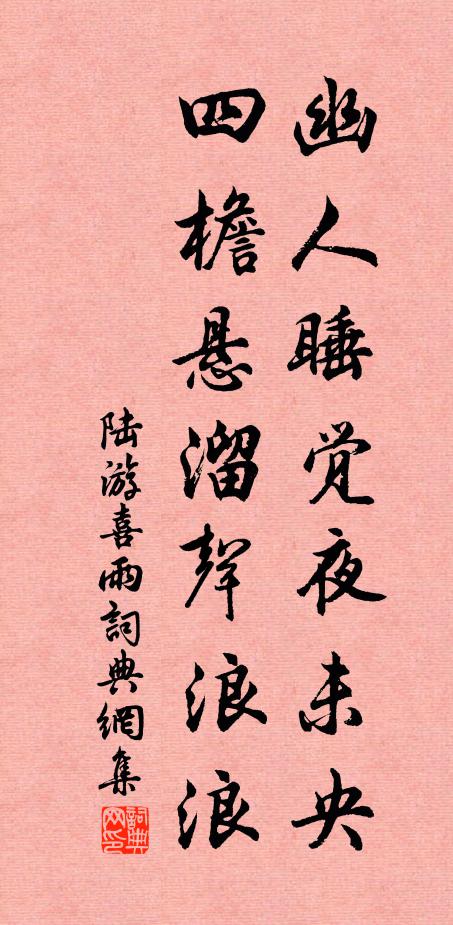 幽人睡觉夜未央
四檐悬溜声浪浪
陆游喜雨詞典網集
詞典网印